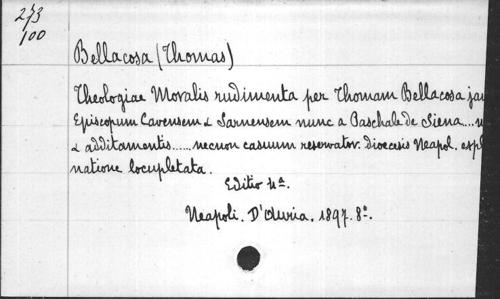 273
100
Bellacosa (Thomas)
Theologiae Moralis rudimenta per Thomam Bellacosa ja
Episcopum Cavensem & Sarnensem nunc a Paschale de Siena...
& additamentis...... necnon casuum reservator. dioecesis Neapol. expl
natione locupletata.
Editio 4a.
Neapoli. D'Auria. 1897. 8º.